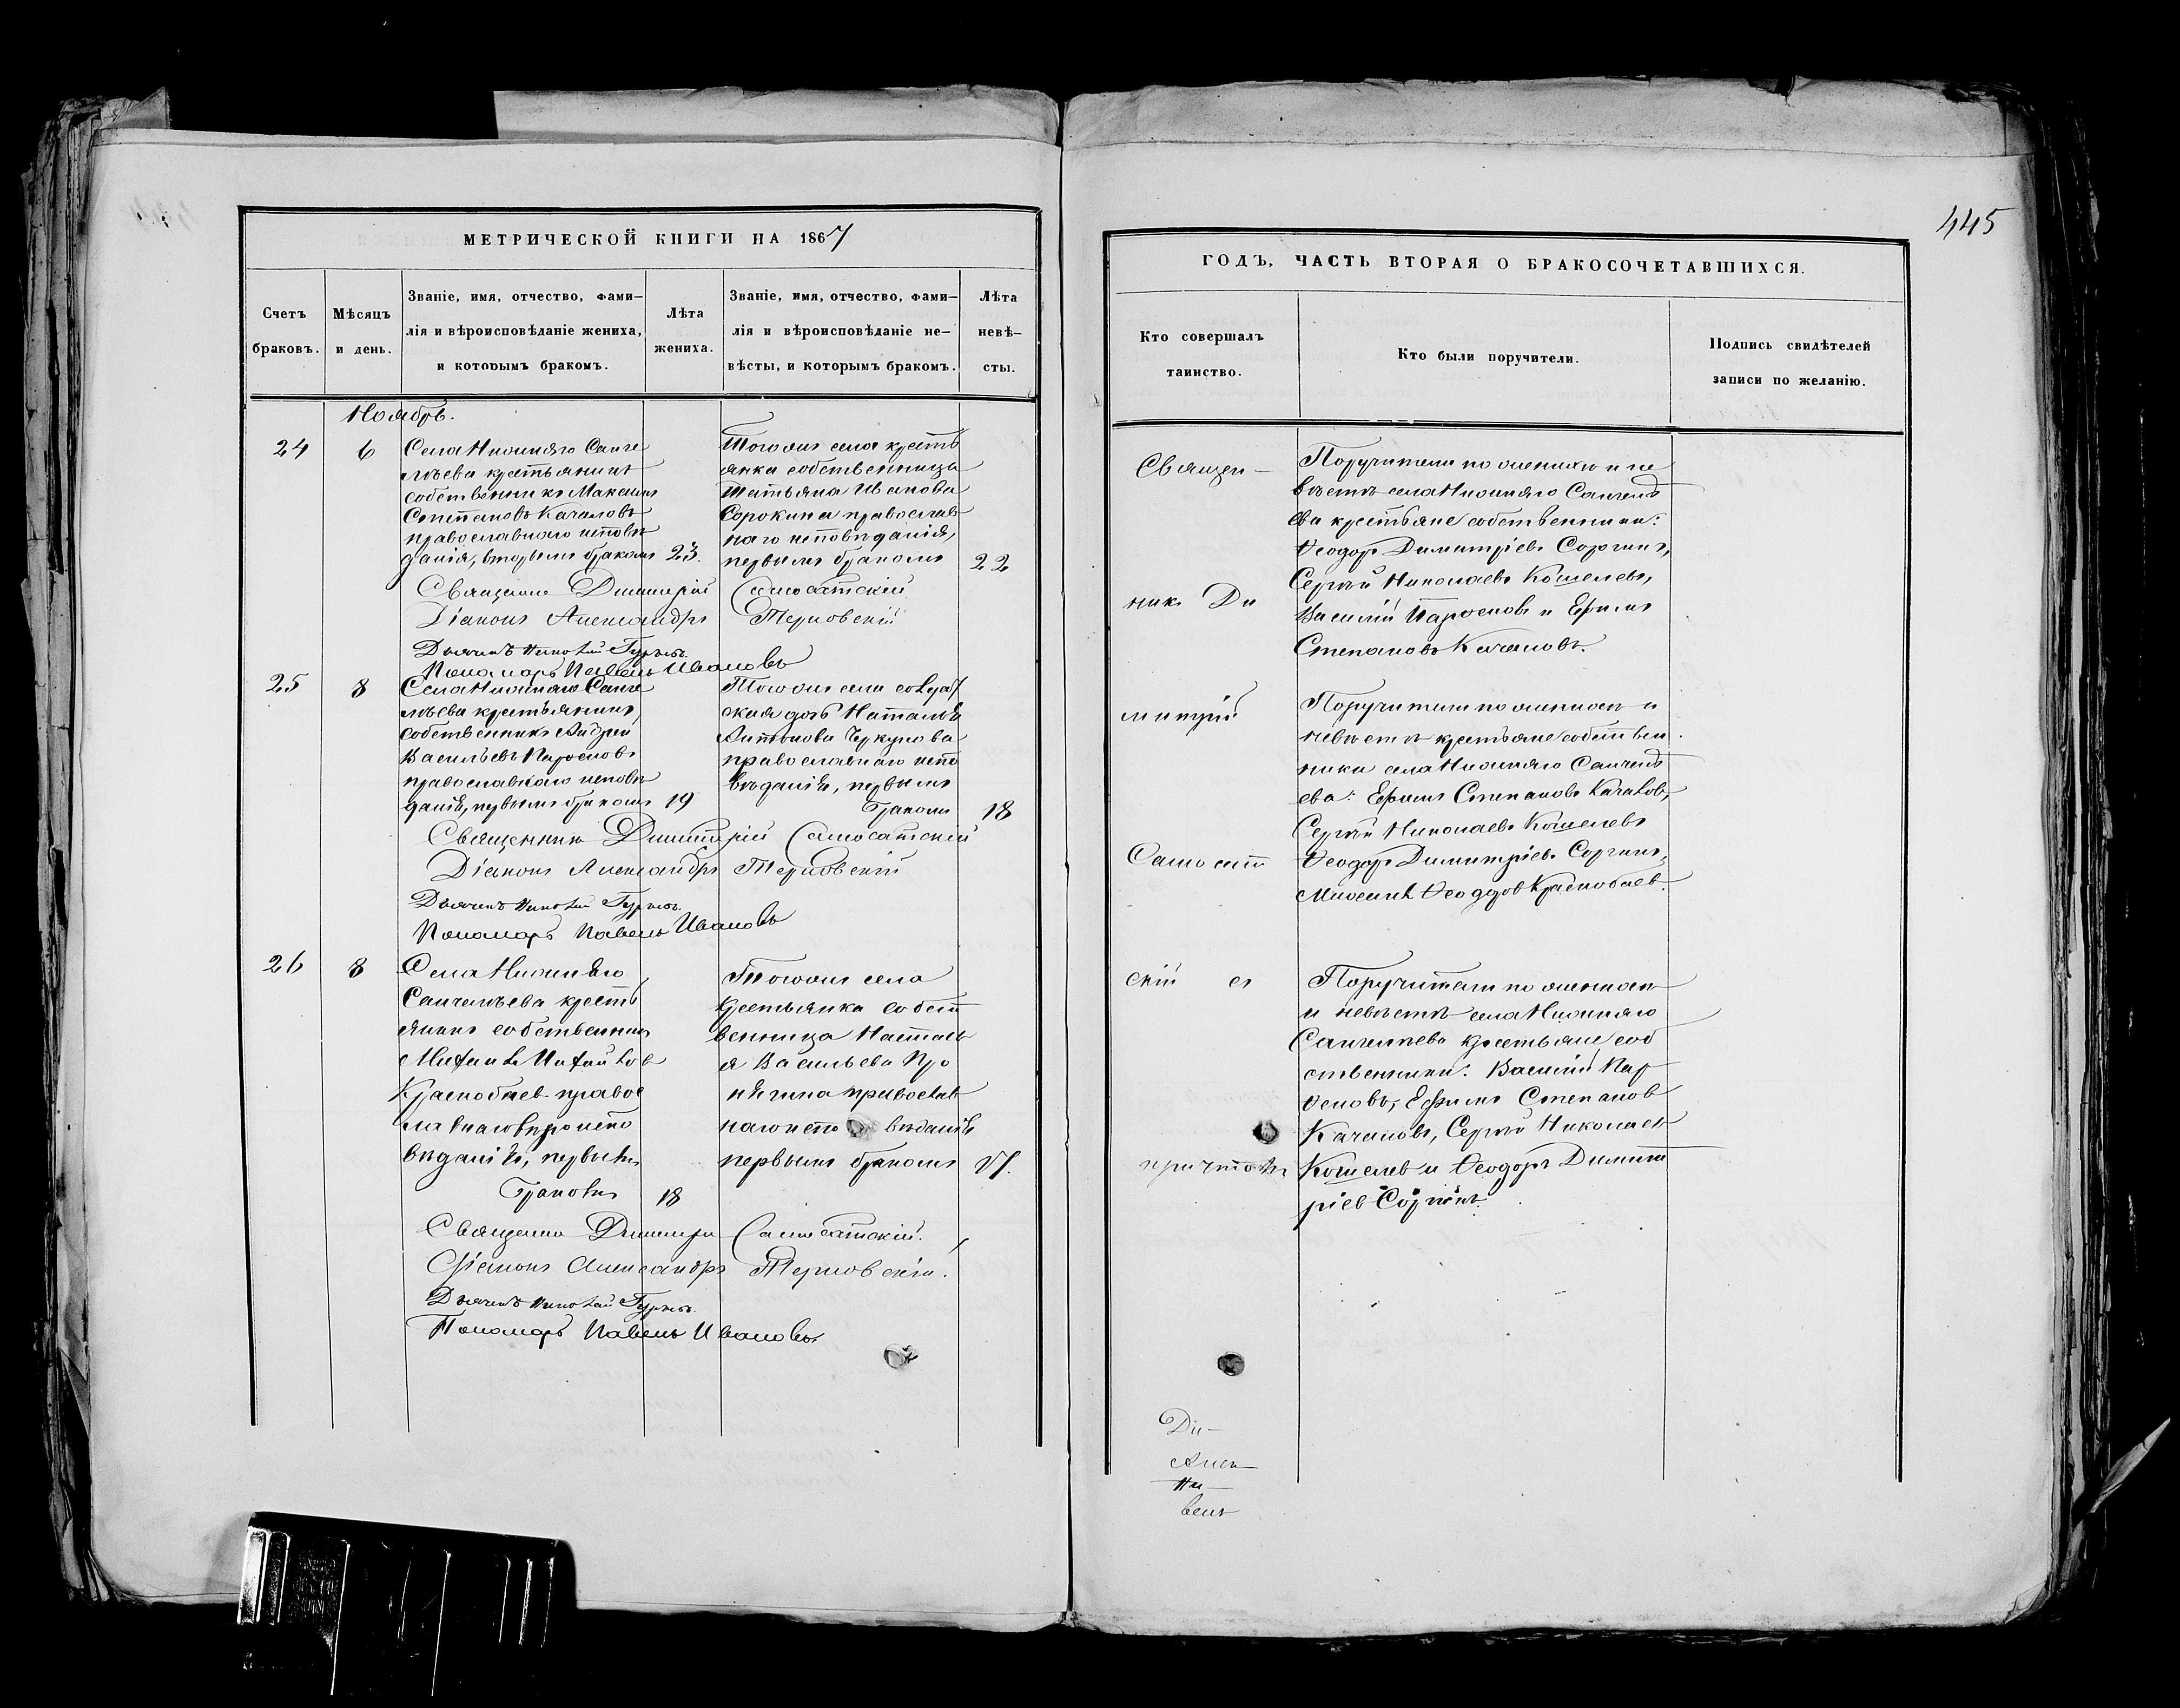 445
МЕТРИЧЕСКОЙ КНИГИ НА 1867
Счетъ браковъ.
Мѣсяцъ и день.
Званіе, имя, отчество, фами-
лія и вѣроисповѣданіе жениха,
и которымъ бракомъ.
Лѣта жениха.
Званіе, имя, отчество, фами-
лія и вѣроисповѣданіе не-
вѣсты, и которымъ бракомъ.
Лѣта невѣ-
сты.
Ноябрь.
24
6
Села Нижняго Санче
лѣева крестьянинъ
собственникъ Максимъ
Степановъ Качаловъ
православнаго исповѣ
данія, вторымъ бракомъ
23.
Тогоже села кресть
янка собственница
Татьяна Иванова
Сорокина православ
наго исповѣданія,
первымъ бракомъ
22
Священникъ Димитрій Самосатскій
Діаконъ Александръ Терновскій
Дьячекъ Николай Гурьевъ.
Пономарь Павелъ Ивановъ
25
8
Села Нижняго Санче
лѣева крестьянинъ
собственникъ Андрей
Васильевъ Парѳеновъ
православнаго исповѣ
данія, первымъ бракомъ
19
Тогоже села солдат
ская дочь Наталья
Антонова
православнаго испо
вѣданія, первымъ
бракомъ
18
Священникъ Димитрій Самосатскій
Діаконъ Александръ Терновскій
Дьячекъ Николай Гурьевъ.
Пономарь Павелъ Ивановъ
26
8
Села Нижняго
Санчелѣева кресть
янинъ собственникъ
Михаилъ Михайлов
Краснобаев правос
лавнаго испо
вѣданія, первымъ
бракомъ
18
Тогоже села
крестьянка собст
венница Наталь
я Васильева Про
нькина православ
наго испо вѣданія
первымъ бракомъ
17.
Священникъ Димитрій Самосатскій.
Діаконъ Александръ Терновскій.
Дьячекъ Николай Гурьевъ.
Пономарь Павелъ Ивановъ.
ГОДЪ, ЧАСТЬ ВТОРАЯ О БРАКОСОЧЕТАВШИХСЯ.
Кто совершалъ
таинство.
Кто были поручители.
Подпись свидѣтелей
записи по желанію.
Священ-
ник Ди
митрій
Самосат
скій съ
причтомъ
Поручители по женихѣ и не
вѣстѣ села Нижняго Санчелѣ
ева крестьяне собственники:
Ѳеодоръ Димитріевъ Сорокинъ,
Сергѣй Николаевъ Кошелевъ,
Василій Парѳеновъ и Ефимъ
Степановъ Качаловъ.
Поручители по женихѣ и
невѣстѣ крестьяне собствен
ники села Нижняго Санчелѣ
ева: Ефимъ Степановъ Качаловъ,
Сергѣй Николаевъ Кошелевъ
Ѳеодоръ Димитріевъ Сорокинъ,
Ѳеодоров Краснобаев.
Поручители по женихѣ
и невѣстѣ села Нижняго
Санчелѣева крестьяне соб
ственники: Василій Пар
ѳеновъ, Ефимъ Степанов
Качаловъ, Сергѣй Николаев
Кошелев и Ѳеодоръ Димит
ріев Сорокинъ.
Ди-
Алек-
Ни-
велъ